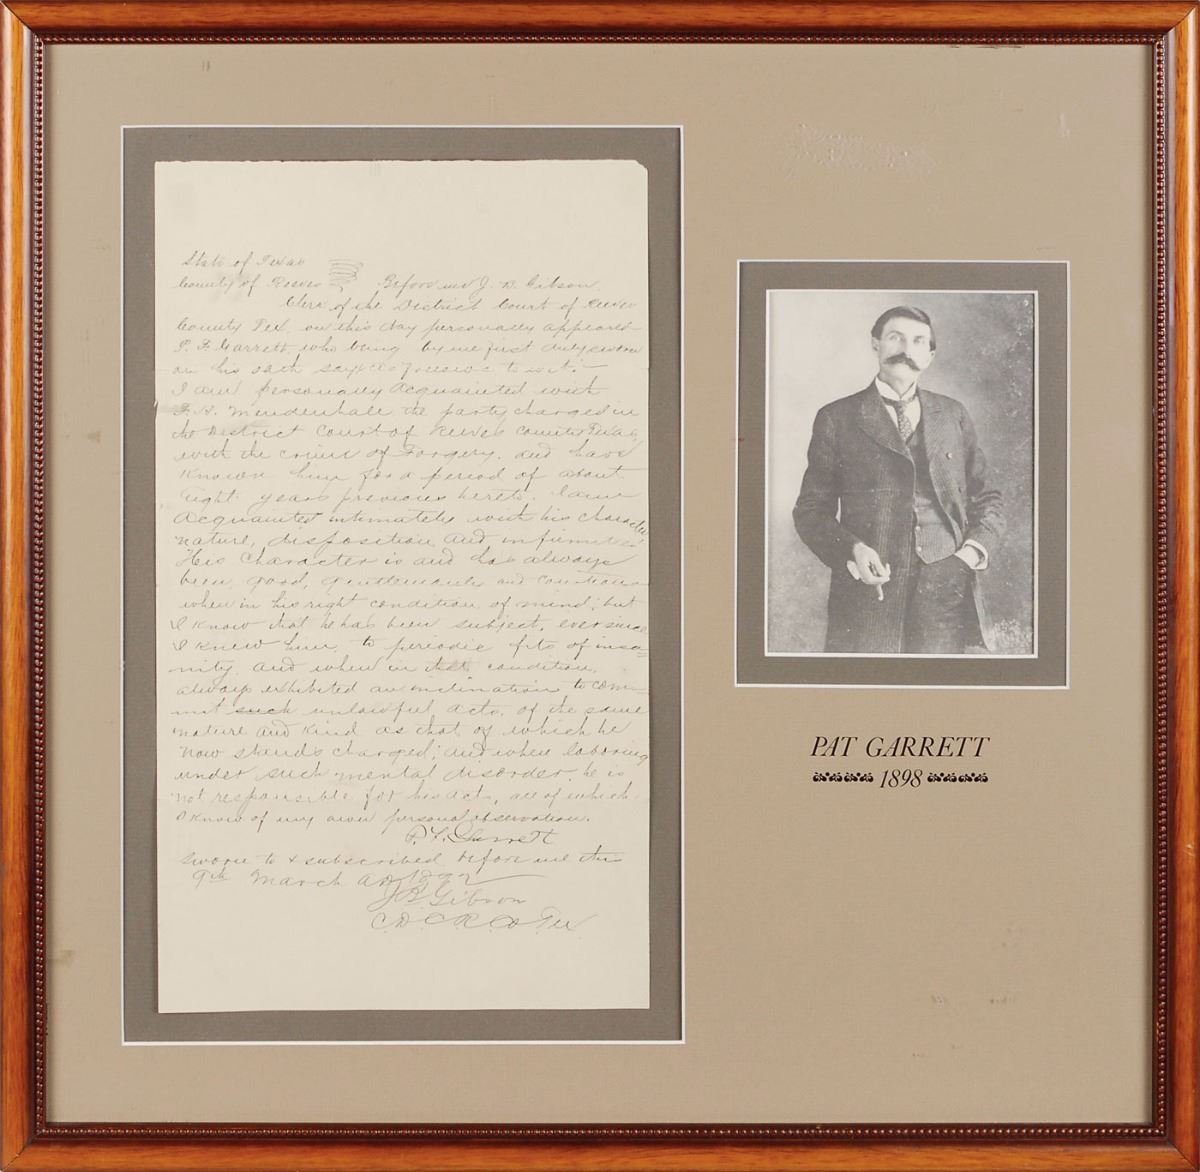 State of Texas
County of Reeves Before me J. B. Gibson
Clerk of the District Court of Reeves
County Tex. on this day personally appeared
P. F. Garrett, who being by me first duly sworn
on his oath says as follows to wit:-
I am personally acquainted with
Mendenhall the party charged in
the District Court of Reeves County Texas,
with the crime of Forgery, and have
known him for a period of about
eight years previous hereto. I am
acquainted intimately with his character
nature, disposition and infirmities
His character is and has always
been good, gentlemanly and courteous
when in his right condition of mind; but
I know that he has been subject, ever since
I knew him, to periodic fits of insa=
nity, and when in that condition,
always exhibited an inclination to com=
mit such unlawful acts, of the same
nature and kind as that of which he
now stands charged; and when laboring
under such mental disorder he is
not responsible for his acts, all of which
I know of my own personal observation.
P. F. Garrett
Sworn to & subscribed before me this
9th March AD 1892
J B Gibson
C. D. C. R. Co Tex
PAT GARRETT
1898